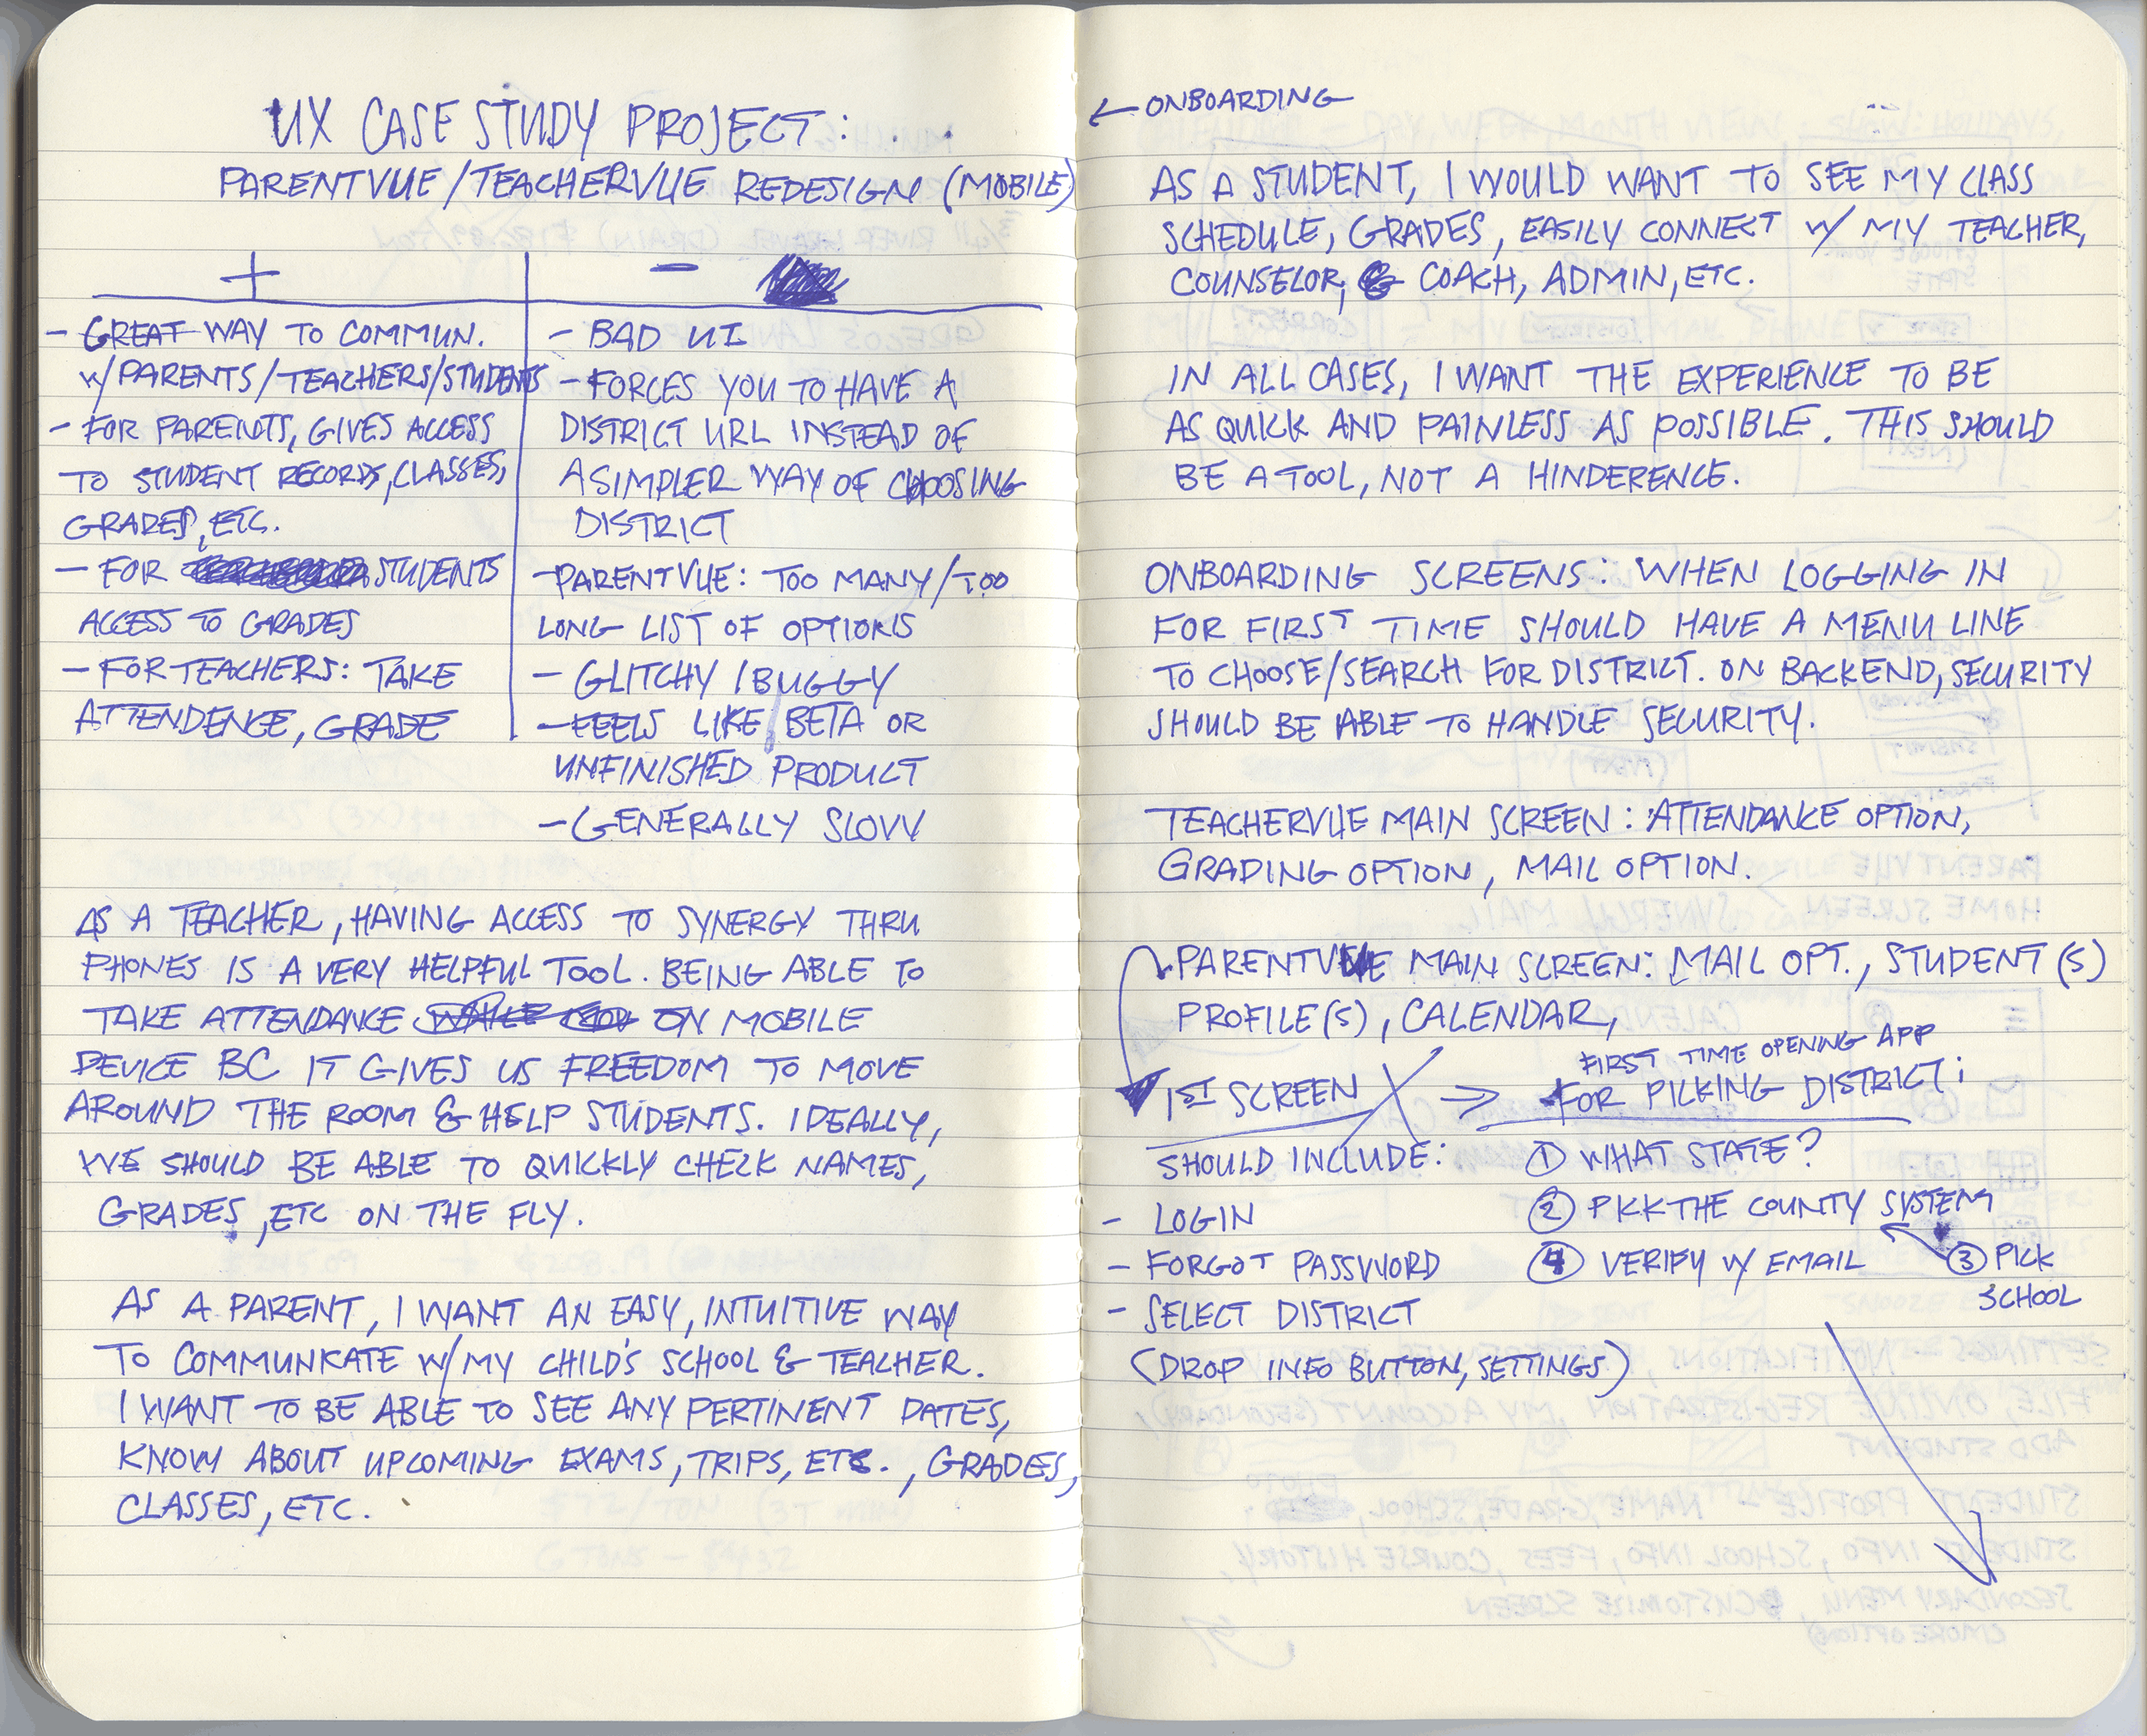 UX CASE STUDY PROJECT:
PARENTVUE/TEACHERVUE REDESIGN (MOBILE)
+
- GREAT WAY TO COMMUN.
W/PARENTS/TEACHERS/STUDENTS
- FOR PARENTS, GIVES ACCESS
TO STUDENT RECORDS, CLASSES,
GRADES, ETC.
- FOR STUDENTS
ACCESS TO GRADES
- FOR TEACHERS: TAKE
ATTENDENCE, GRADE
-
- BAD UI
- FORCES YOU TO HAVE A
DISTRICT URL INSTEAD OF
A SIMPLER WAY OF CHOOSING
DISTRICT
- PARENTVUE: TOO MANY/TOO
LONG LIST OF OPTIONS
- GLITCHY/BUGGY
- FEELS LIKE BETA OR
UNFINISHED PRODUCT
- GENERALLY SLOW
AS A TEACHER, HAVING ACCESS TO SYNERGY THRU
PHONES IS A VERY HELPFUL TOOL. BEING ABLE TO
TAKE ATTENDANCE ON MOBILE
DEVICE BC IT GIVES US FREEDOM TO MOVE
AROUND THE ROOM & HELP STUDENTS. IDEALLY,
WE SHOULD BE ABLE TO QUICKLY CHECK NAMES,
GRADES, ETC ON THE FLY.
AS A PARENT, I WANT AN EASY, INTUITIVE WAY
TO COMMUNICATE W/MY CHILD'S SCHOOL & TEACHER.
I WANT TO BE ABLE TO SEE ANY PERTINENT DATES,
KNOW ABOUT UPCOMING EXAMS, TRIPS, ETC., GRADES,
CLASSES, ETC.
← ONBOARDING
AS A STUDENT, I WOULD WANT TO SEE MY CLASS
SCHEDULE, GRADES, EASILY CONNECT W/ MY TEACHER,
COUNSELOR, COACH, ADMIN, ETC.
IN ALL CASES, I WANT THE EXPERIENCE TO BE
AS QUICK AND PAINLESS AS POSSIBLE. THIS SHOULD
BE A TOOL, NOT A HINDERENCE.
ONBOARDING SCREENS: WHEN LOGGING IN
FOR FIRST TIME SHOULD HAVE A MENU LINE
TO CHOOSE/SEARCH FOR DISTRICT. ON BACKEND, SECURITY
SHOULD BE ABLE TO HANDLE SECURITY.
TEACHERVUE MAIN SCREEN: ATTENDANCE OPTION,
GRADING OPTION, MAIL OPTION.
PARENTVUE MAIN SCREEN: MAIL OPT., STUDENT(S)
PROFILE(S), CALENDAR,
1ST SCREEN
SHOULD INCLUDE:
- LOGIN
- FORGOT PASSWORD
- SELECT DISTRICT
(DROP INFO BUTTON, SETTINGS)
⇒ FIRST TIME OPENING APP
FOR PICKING DISTRICT:
① WHAT STATE?
② PICK THE COUNTY SYSTEM
④ VERIFY W/ EMAIL
③ PICK
SCHOOL